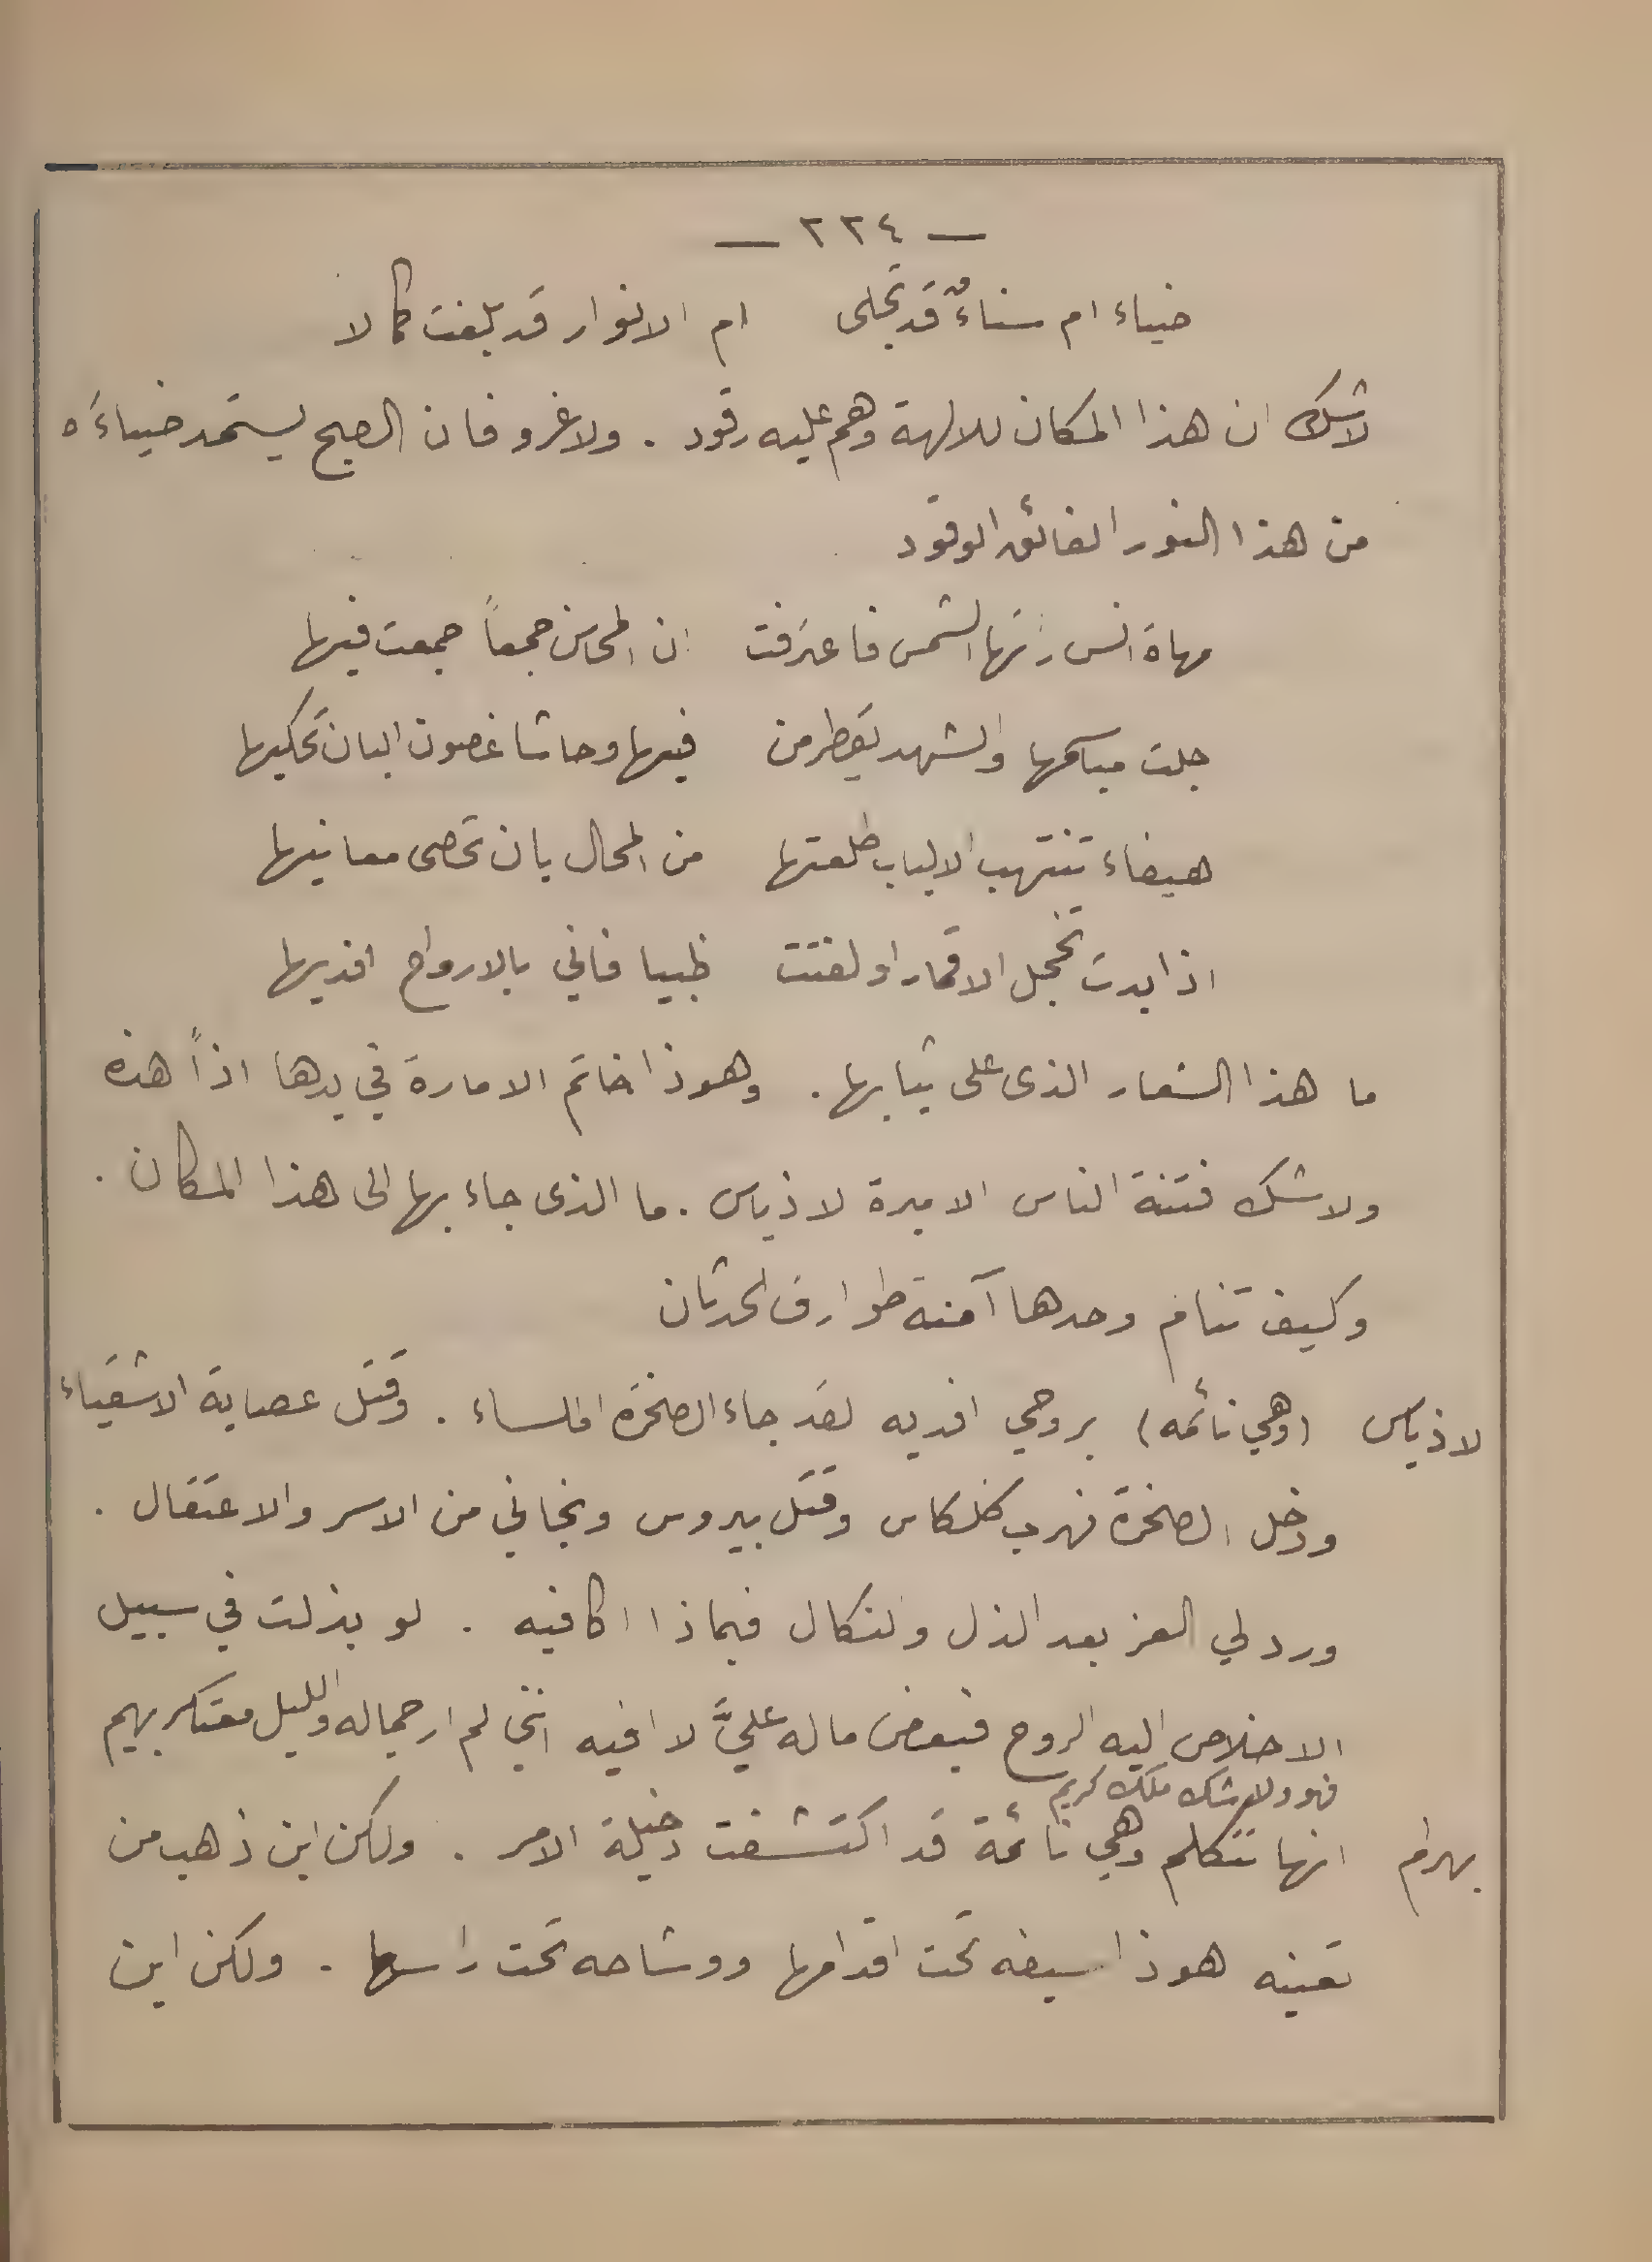 — ٢٢٤ —
ضياء ام سناءٌ قد تجلى ام الانوار قد بلغت كمالا
لاشك ان هذا المكان للالهة وهم عليه رقود . ولاغرو فان الصبح يستمد ضياءَه
من هذا النور الفائق الوقود
مهاة انس رنتها الشمس فاعترفت ان المحاسن جمعاً جمعت فيها
جلت مباسمها والشهد يقطر من فيها وحاشا غصون البان تحكيها
هيفاء تنتهب الالباب طلعتها من المحال بان تحصى معانيها
اذا بدت تخجل الاقمار او لفتت ظبيا فاني بالارواح افديها
ما هذا الشعار الذى على ثيابها . وهوذا خاتم الامارة في يدها اذاً هذه
ولاشك فتنة الناس الاميرة لاذياس . ما الذى جاء بها الى هذا المكان .
وكيف تنام وحدها آمنة طوارق الحدثان
لاذياس (وهي نائمه) بروحي افديه لقد جاء الصخرة الملساء . وقتل عصابة الاشقياء
ودخل الصخرة فهرب كلكاس وقتل بيروس ونجاني من الاسر والاعتقال .
ورد لي العز بعد الذل والنكال فبماذا اكافيه . لو بذلت في سبيل
الاخلاص اليه الروح فبعض ماله عليَّ لا افيه انني لم ار جماله والليل معتكر بهيم
فهو ولا شك ملك كريم
بهرام انها تتكلم وهي نائمة قد اكتشفت دخيلة الامر . ولكن اين ذهب من
تعنيه هوذا سيفه تحت اقدامها ووشاحه تحت راسها . ولكن اين